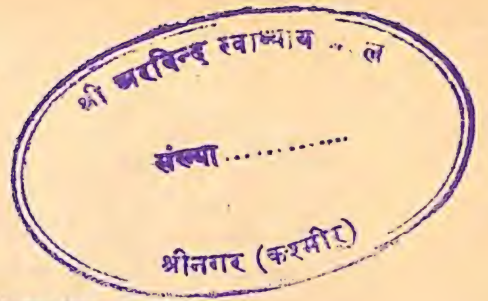 श्री अरविन्द स्वाध्याय ... ल
संख्या ..............
श्रीनगर (कश्मीर)